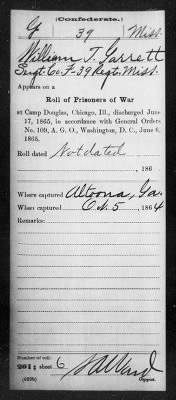 (Confederate.)
G 39 Miss.
William T. Garrett
Sergt. Co. F. 39 Regt. Miss.
Appears on a
Roll of Prisoners of War
at Camp Douglas, Chicago, Ill., discharged June
17, 1865, in accordance with General Orders
No. 109, A. G. O., Washington, D. C., June 6,
1865.
Roll dated Not dated
, 186
Where captured Altoona, Ga.
When captured Oct. 5, 1864
Remarks:
Number of roll:
201; sheet 6
(639b) Copyist.